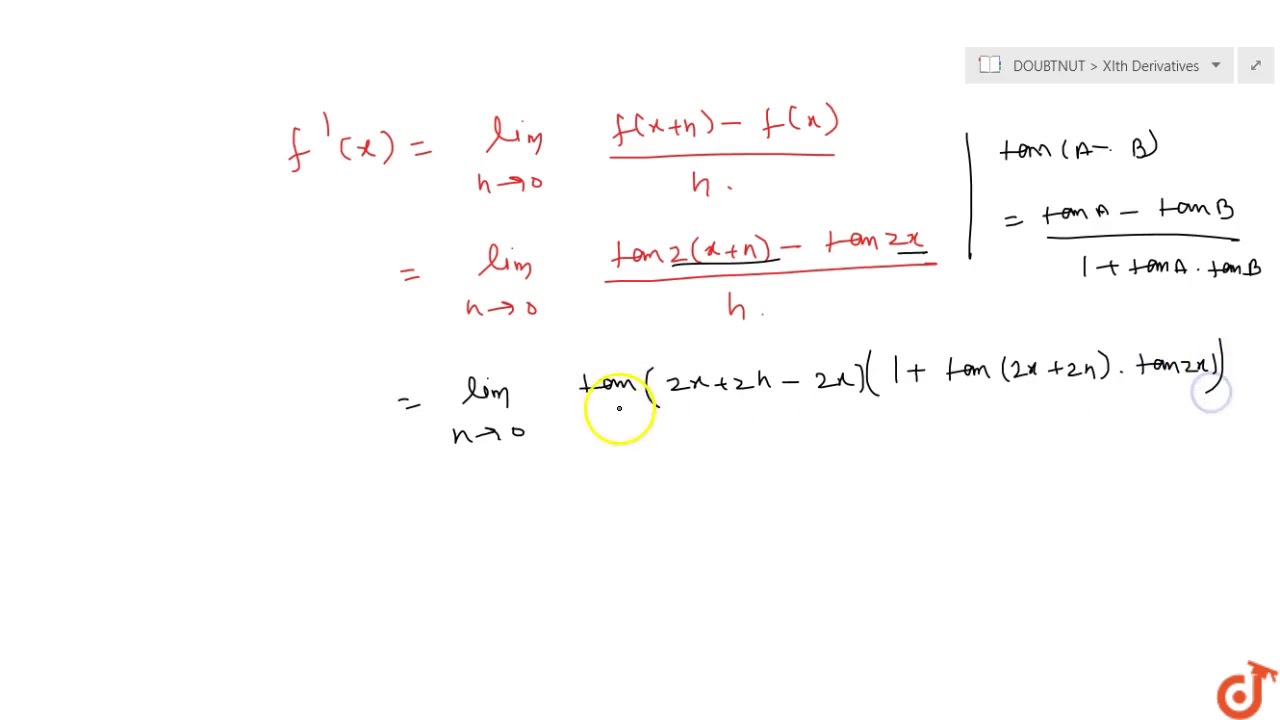 DOUBTNUT > XIth Derivatives
f'(x) = lim h→0 f(x+h) - f(x) / h.
= lim h→0 tan 2(x+h) - tan 2x / h.
= lim h→0 tan(2x+2h-2x)(1 + tan(2x+2h). tan2x)
tan(A- B)
= tanA - tanB / 1 + tanA . tanB